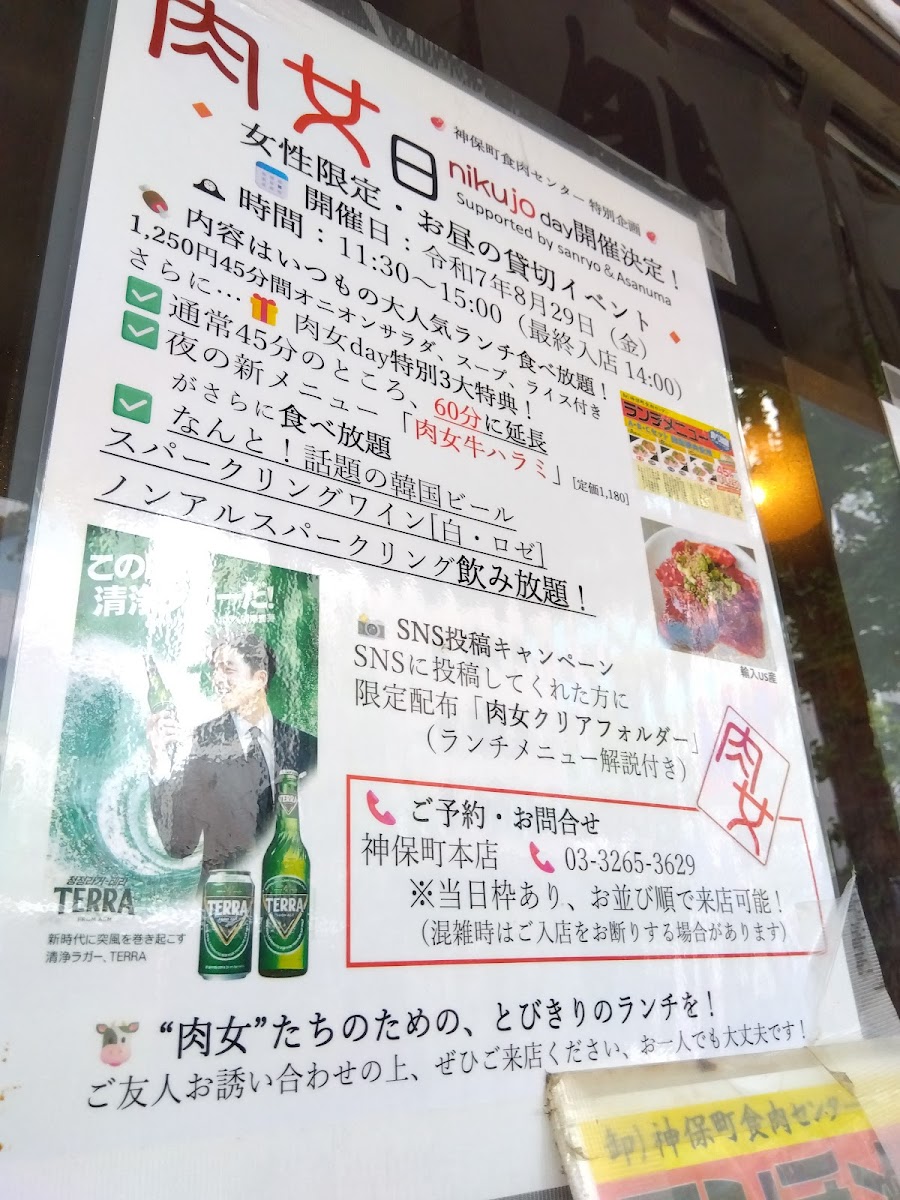 神保町食肉センター 特別企画
肉女日 nikujo day開催決定！
Supported by sanryo & Asanuma
女性限定・お昼の貸切イベント
開催日：令和7年8月29日（金）
時間：11:30～15:00（最終入店 14:00）
内容はいつもの大人気ランチ食べ放題！
1,250円45分間オニオンサラダ、スープ、ライス付き
さらに… 肉女day特別3大特典！
通常45分のところ、60分に延長
夜の新メニュー「肉女牛ハラミ」[定価1,180]
がさらに食べ放題
なんと！話題の韓国ビール
スパークリングワイン[白・ロゼ]
ノンアルスパークリング飲み放題！
ランチメニュー
輸入US産
この
清浄ラガーだ!
SNS投稿キャンペーン
SNSに投稿してくれた方に
限定配布「肉女クリアフォルダー」
（ランチメニュー解説付き）
肉女
청정라거-테라
TERRA
TERRA
TERRA
新時代に突風を巻き起こす
清浄ラガー、TERRA
ご予約・お問合せ
神保町本店 03-3265-3629
※当日枠あり、お並び順で来店可能！
（混雑時はご入店をお断りする場合があります）
“肉女”たちのための、とびきりのランチを！
ご友人お誘い合わせの上、ぜひご来店ください、お一人でも大丈夫です！
卸）神保町食肉センター